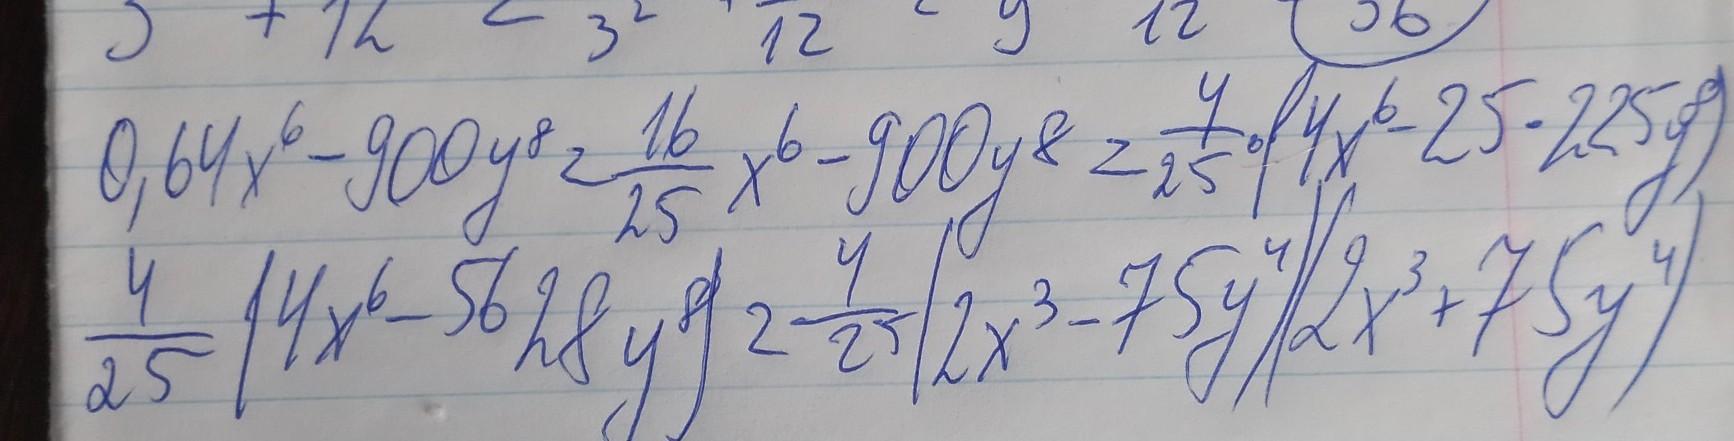 + 12 = 3² + /12 = 9 12 36
0,64x⁶ - 900y⁸ = 16/25 x⁶ - 900y⁸ = 4/25 · (4x⁶ - 25 · 225y⁸)
4/25 (4x⁶ - 5628y⁸) = 4/25 (2x³ - 75y⁴)(2x³ + 75y⁴)